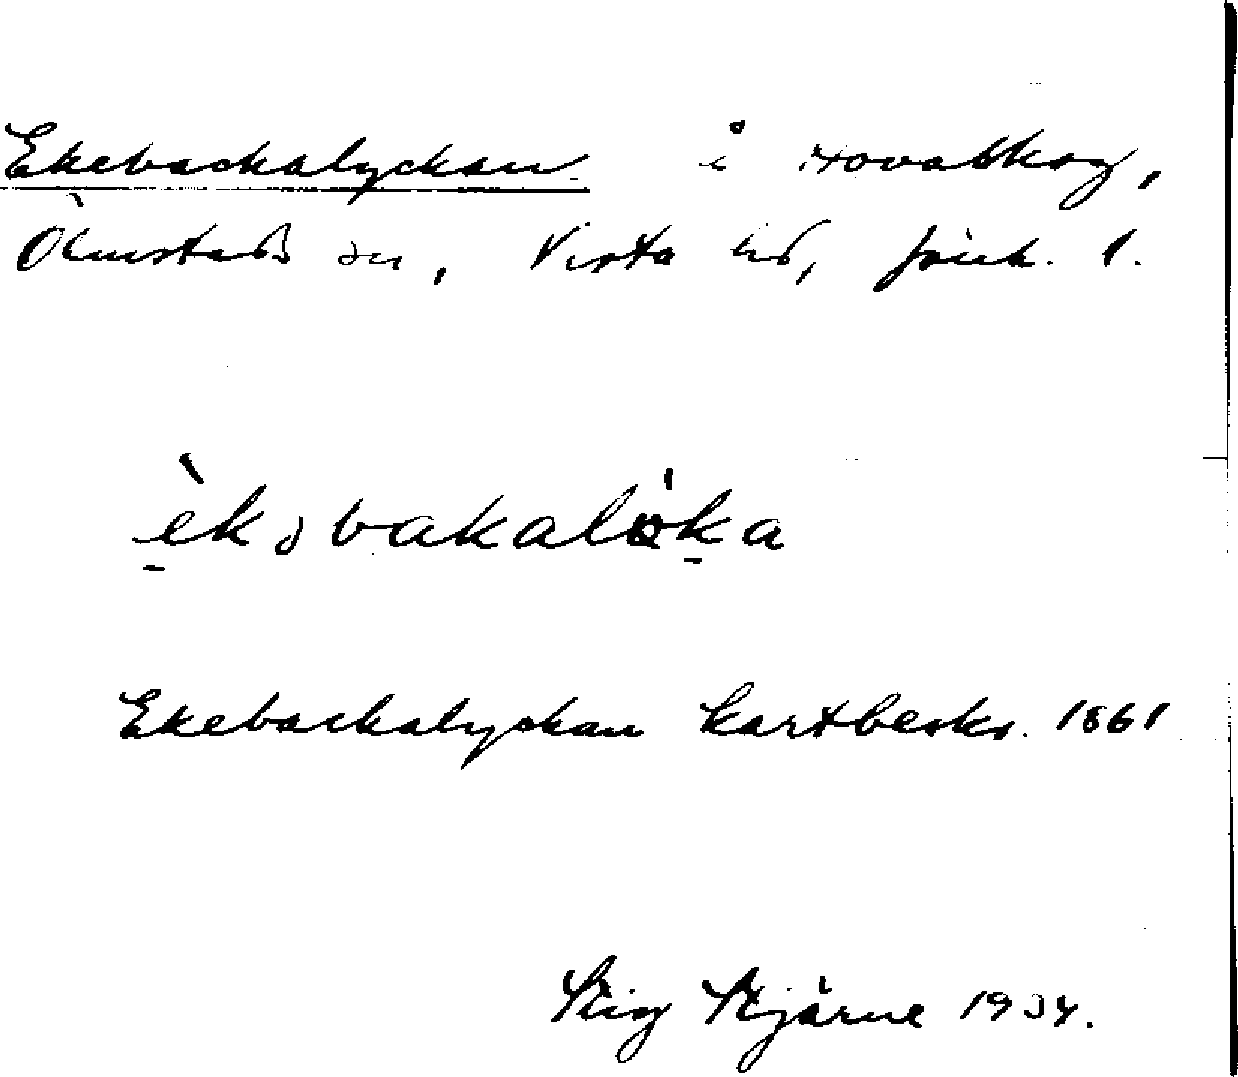 Ekebackalyckan i Hovaskog,
Ölmstads sn, Vista hd, Jönk. l.
èkəbakalöka
Ekebackalyckan kartbeskr. 1861
Stig Stjärne 1934.